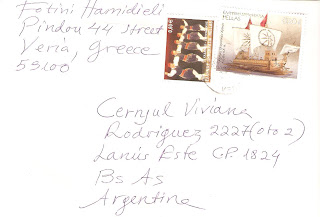 Fotini Hamidieli
Pindou 44 street
Veria, Greece
59100
HELLAS
Cernjul Viviana
Rodriguez 2227 (oto 2)
Lanús Este CP. 1824
Bs As
Argentina